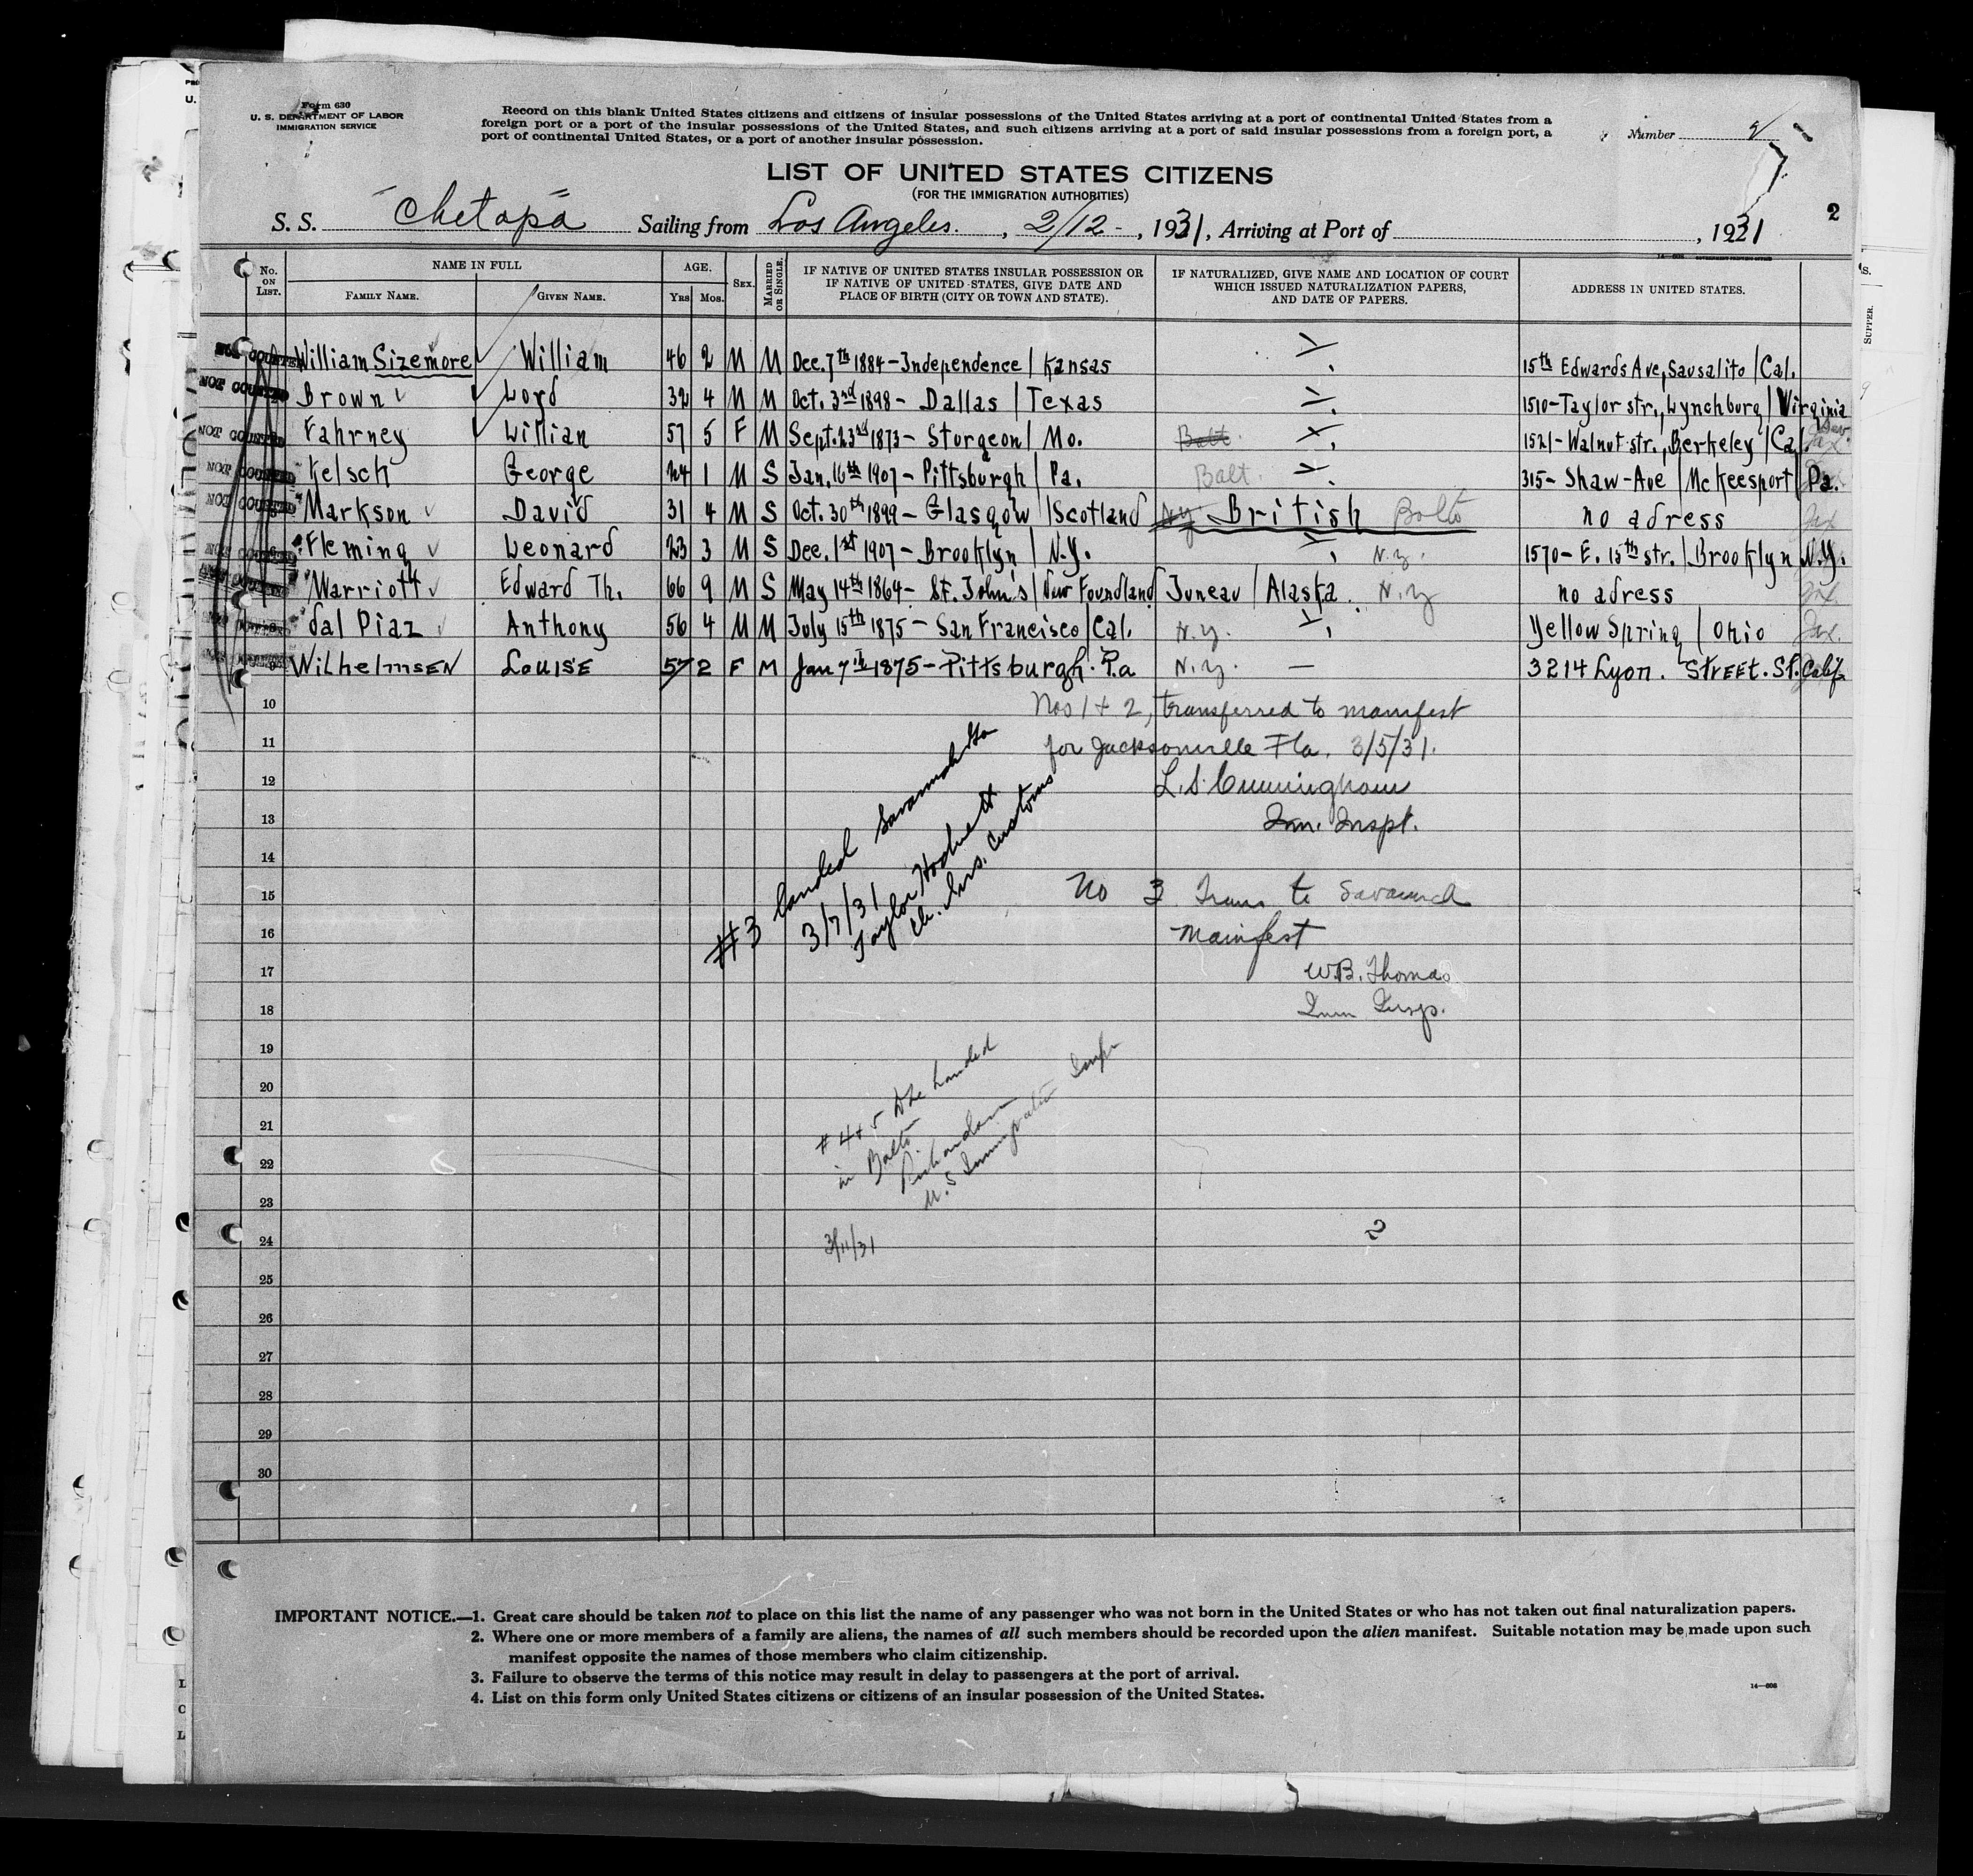 Form 630
U. S. DEPARTMENT OF LABOR
IMMIGRATION SERVICE
Record on this blank United States citizens and citizens of insular possessions of the United States arriving at a port of continental United States from a
foreign port or a port of the insular possessions of the United States, and such citizens arriving at a port of said insular possessions from a foreign port, a
port of continental United States, or a port of another insular possession.
Number
LIST OF UNITED STATES CITIZENS
(FOR THE IMMIGRATION AUTHORITIES)
2
S. S. "Chetopa" Sailing from Los Angeles. , 2/12 - , 1931, Arriving at Port of , 1931
No. ON LIST. NAME IN FULL AGE. SEX. MARRIED OR SINGLE. IF NATIVE OF UNITED STATES INSULAR POSSESSION OR IF NATIVE OF UNITED STATES, GIVE DATE AND PLACE OF BIRTH (CITY OR TOWN AND STATE). IF NATURALIZED, GIVE NAME AND LOCATION OF COURT WHICH ISSUED NATURALIZATION PAPERS, AND DATE OF PAPERS. ADDRESS IN UNITED STATES.
FAMILY NAME. GIVEN NAME. YRS MOS.
NOT COUNTED William Sizemore William 46 2 M M Dec. 7th 1884 - Independence / Kansas 15th Edwards Ave, Sausalito / Cal.
NOT COUNTED Brown Loyd 32 4 M M Oct. 3rd 1898 - Dallas / Texas 1510 - Taylor str., Lynchburg / Virginia
NOT COUNTED Fahrney Willian 57 5 F M Sept. 23rd 1873 - Sturgeon / Mo. Balt. 1521 - Walnut str., Berkeley / Cal. Sav.
NOT COUNTED Kelsch George 24 1 M S Jan. 16th 1907 - Pittsburgh / Pa. Balt. 315 - Shaw - Ave / McKeesport / Pa.
NOT COUNTED Markson David 31 4 M S Oct. 30th 1899 - Glasgow / Scotland Ny British Balto no adress Jax
NOT COUNTED Fleming Leonard 23 3 M S Dec. 1st 1907 - Brooklyn / N.Y. N.Y. 1570 - E. 15th str. / Brooklyn N.Y.
NOT COUNTED Marriott Edward Th. 66 9 M S May 14th 1864 - St. John's / New Foundland Juneau / Alaska. N.Y no adress Jax.
dal Piaz Anthony 56 4 M M July 15th 1875 - San Francisco / Cal. N.Y. Yellow Spring / Ohio Jax.
9 WilhelmsEN LouisE 57 2 F M Jan 7th 1875 - Pittsburgh. Pa N.Y. — 3214 Lyon. StrEEt. Sf. Calif.
10 Nos 1 + 2, transferred to manifest
11 for Jacksonville Fla. 3/5/31.
12 L. S. Cunningham
13 Im. Inspt.
14
#3 landed Savannah Ga
3/7/31
Taylor Hodnett
Customs
15 No 3 Trans to Savannah
16 Manifest
17 W.B. Thomas
18 Imm Insp.
19
20
21
# 4 + 5 landed
in Balto
Richardson
U.S Immigration Insp
22
23
24 3/11/31 2
25
26
27
28
29
30
IMPORTANT NOTICE.—1. Great care should be taken not to place on this list the name of any passenger who was not born in the United States or who has not taken out final naturalization papers.
2. Where one or more members of a family are aliens, the names of all such members should be recorded upon the alien manifest. Suitable notation may be made upon such
manifest opposite the names of those members who claim citizenship.
3. Failure to observe the terms of this notice may result in delay to passengers at the port of arrival.
4. List on this form only United States citizens or citizens of an insular possession of the United States.
14—808